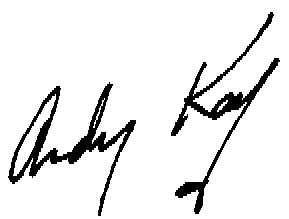 Andy Kay